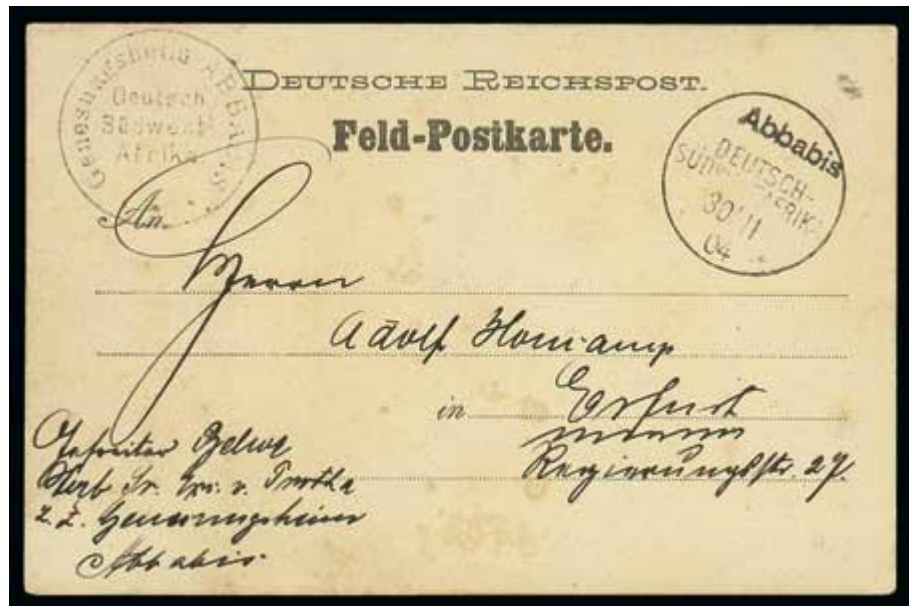 Genesungsheim ABBABIS
Deutsch
Südwest
Afrika
DEUTSCHE REICHSPOST.
Feld-Postkarte.
Abbabis
DEUTSCH-
SÜDWESTAFRIKA
30/11
04
An
Herrn
Adolf
in Erfurt
Regierungsstr. 27.
Gefreiter
v. Trotha
z. Z. Genesungsheim
Abbabis